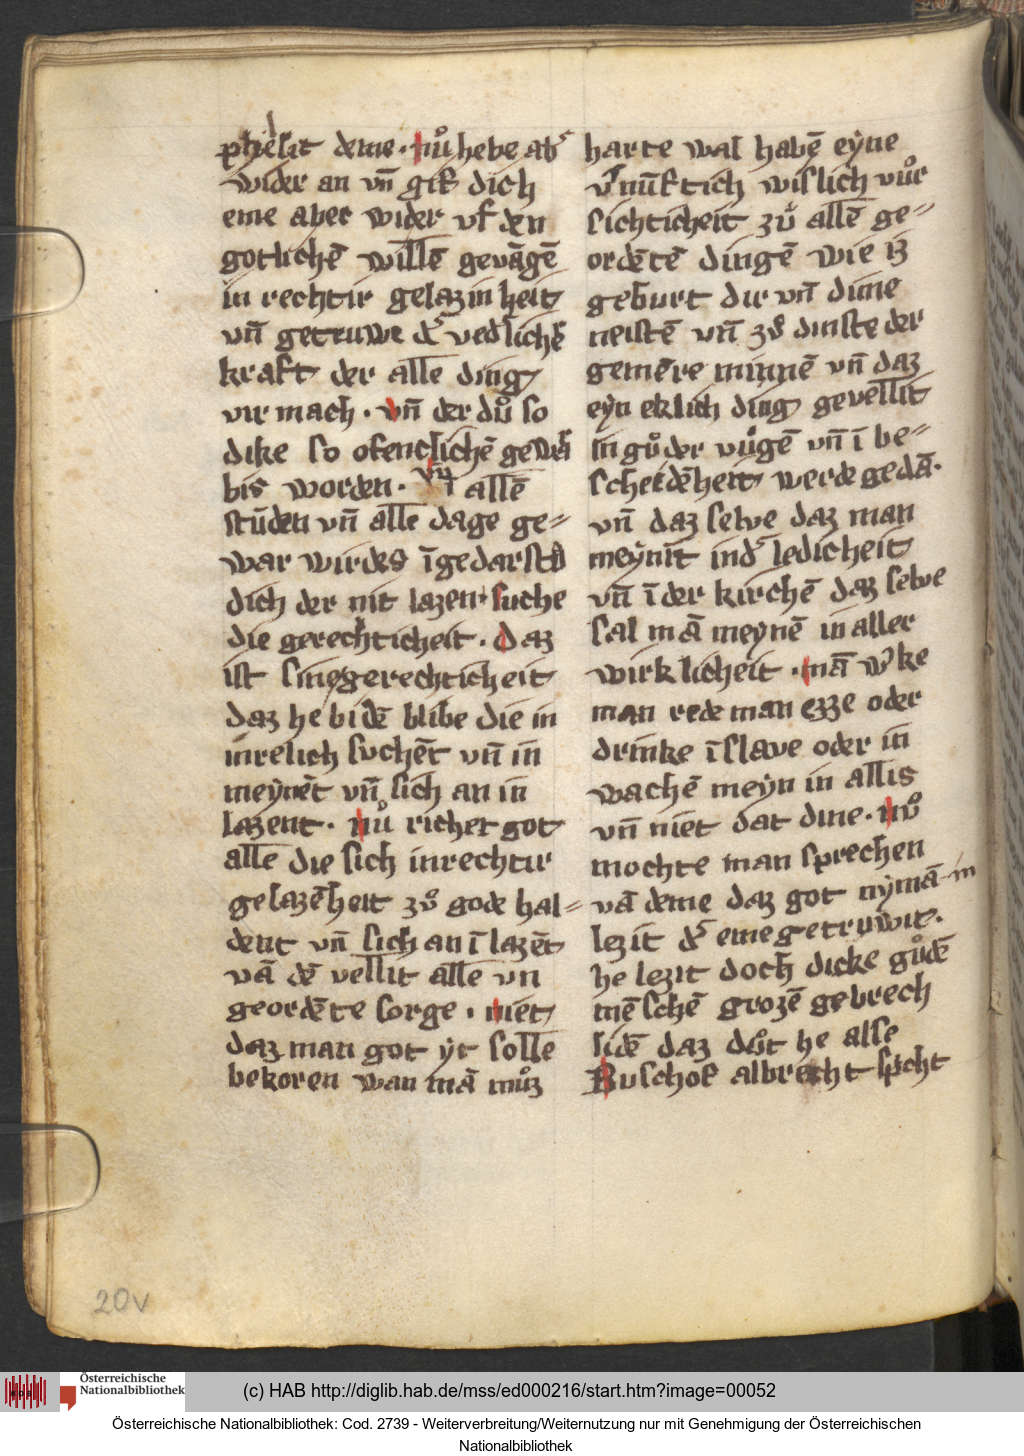 phesit deme · nuͦ hebe abʼ
wider an vn̄ gif dich
eme aber wider vf den
gotlichē willē gevāgē
in rechtir gelazinheit
vn̄ getruwe dʼ vedʼlichē
kraft der alle ding
vir mach · vn̄ der duͦ so
dike so ofentlichē gewar̄
bis worden · vn̄ ī allē
stūden vn̄ alle dage ge=
war wirdes īgedarstu
dich der nit lazen · suche
die gerechticheit · Daz
ist sine gerechticheit
daz he bi dē blibe die in
inrelich suchēt vn̄ in
meynēt vn̄ sich an in
lazent · nuͦ richet got
alle die sich inrechtir
gelazēheit zuͦ gode hal=
dent vn̄ sich an ī lazēt
vā dē vellit alle vn
geordēte sorge · niet
daz man got yt solle
bekoren wan mā muͦz
harte wal habē eyne
vʼnūftich wislich vuͦr
sichticheit zuͦ allē ge=
ordētē dingē wie iz
geburt dir vn̄ dime
neistē vn̄ zuͦ dinste der
gemēre minnē vn̄ daz
eyn eklich ding gevellit
in guͦder vuͦgē vn̄ ī be=
scheidēheit werde gedā·
vn̄ daz selve daz man
meynit indʼ ledicheit
vn̄ ī der kirchē daz selve
sal mā meynē in aller
wirklicheit · mā wʼke
man rede man ezze oder
drinke ī slave oder in
wachē meyn in allis
vn̄ niet dat dine · nuͦ
mochte man sprechen
vā deme daz got nymā in
lezit dʼ eme getruwit·
he lezit doch dicke guͦdē
mēschē grozē gebrech
lidē daz duͦt he alse
Buschof albrecht spͥcht
20v
Österreichische
Nationalbibliothek
(c) HAB http://diglib.hab.de/mss/ed000216/start.htm?image=00052
Österreichische Nationalbibliothek: Cod. 2739 - Weiterverbreitung/Weiternutzung nur mit Genehmigung der Österreichischen
Nationalbibliothek